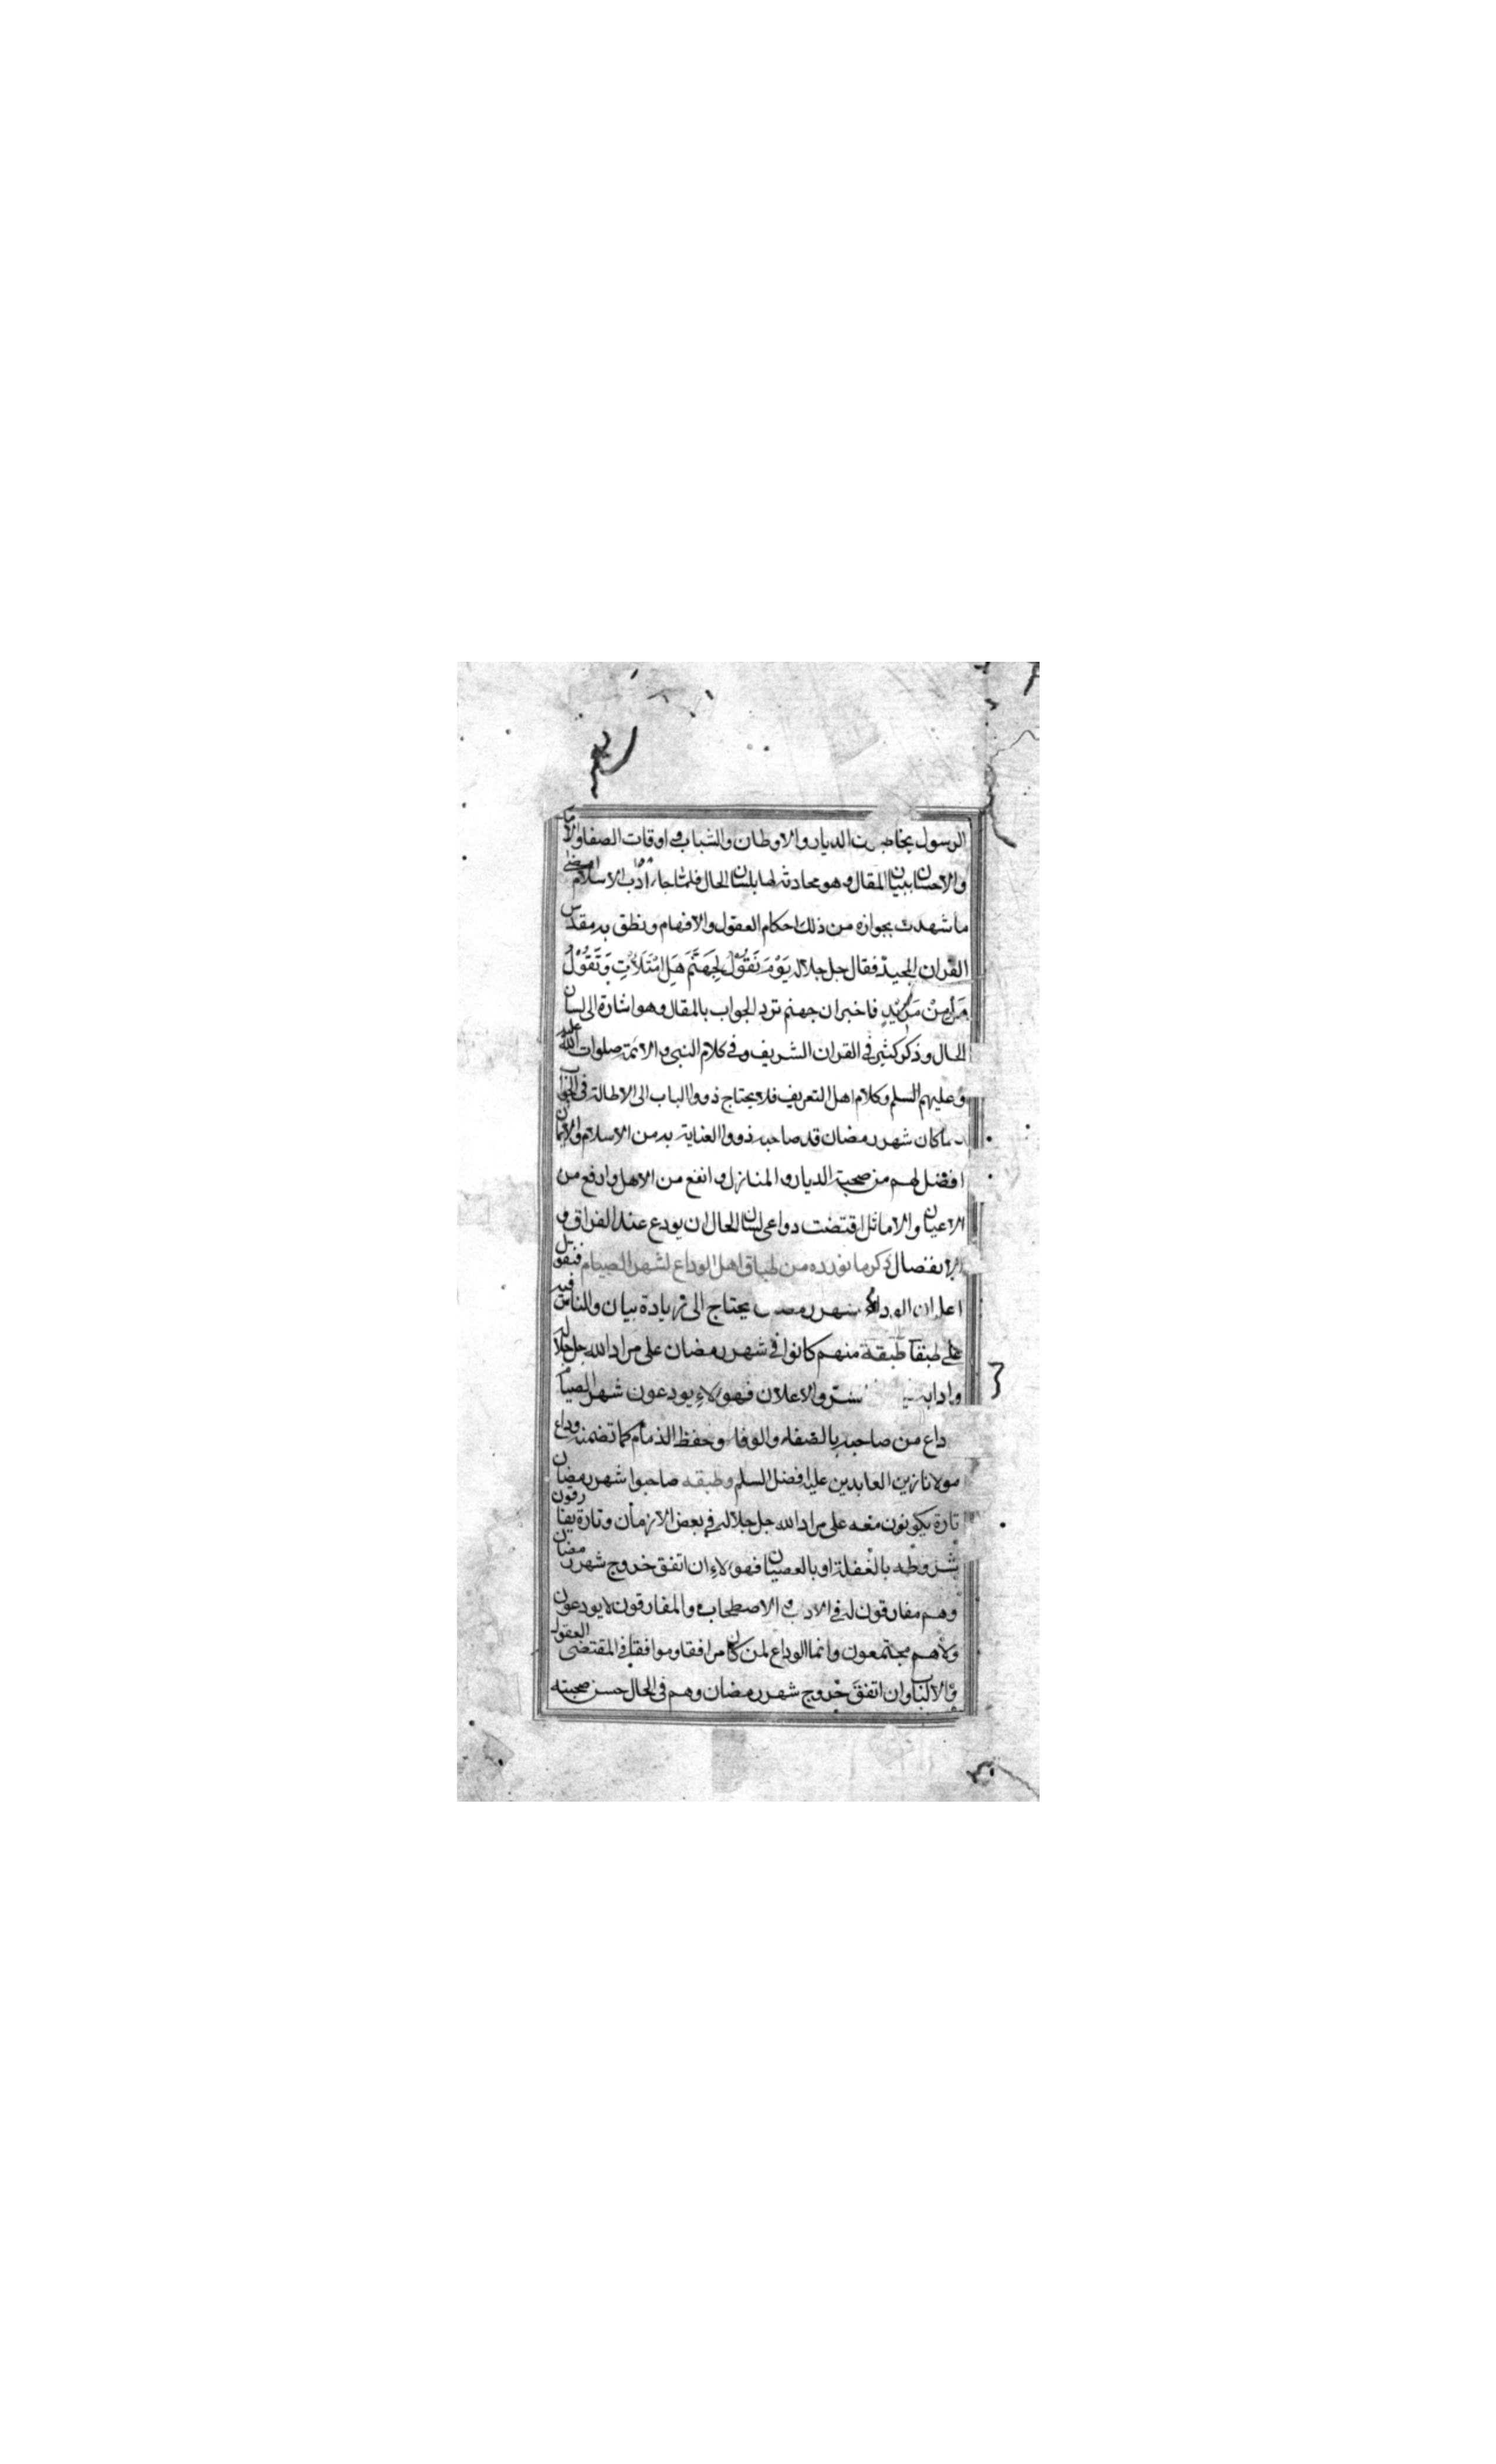 الرسول يخاطبون الديار والاوطان والشباب واوقات الصفا والاما
والاحسان ببيان المقال وهو محادثة لها بلسان الحال فلما جاء ادب الاسلام امضى
ما شهدت بجوازه من ذلك احكام العقول والافهام ونطق به مقدس
القران المجيد فقال جل جلاله يَوْمَ نَقُوْلُ لِجَهَنَّمَ هَلِ امْتَلَأتِ وَتَقُوْلُ
هَلْ مِنْ مَزِيْدٍ فاخبر ان جهنم ترد الجواب بالمقال وهو اشارة الى لسان
الحال وذكر كثير في القران الشريف وفي كلام النبي والائمة صلوات الله عليه
وعليهم السلم وكلام اهل التعريف فلا يحتاج ذووا الباب الى الاطالة في الجواب
ما كان شهر رمضان قد صاحبه ذووا العناية به من الاسلام والايمان
افضل لهم من صحبة الديار والمنازل وانفع من الاهل وارفع من
الاعيان والاماثل اقتضت دواعي لسان الحال ان يودع عند الفراق و
الانفصال ذكر ما نورده من طباق اهل الوداع لشهر الصيام فنقول
اعلم ان الوداع شهر رمضان يحتاج الى زيادة بيان والناس فيه
على طبقات طبقة منهم كانوا في شهر رمضان على مراد الله جل جلاله
وادابه السر والاعلان فهولاءِ يودعون شهر الصيام
داع من صاحبه بالصفاء والوفاء وحفظ الذمام كما تضمنه وداع
مولانا زين العابدين عليه افضل السلم وطبقه صاحبوا شهر رمضان
تارة يكونون معه على مراد الله جل جلاله في بعض الازمان وتارة يفارقون
شروطه بالغفلة او بالعصيان فهولاءِ ان اتفق خروج شهر رمضان
وهم مفارقون له في الادب والاصطحاب والمفارقون لا يودعون
ولا هم مجتمعون وانما الوداع لمن كان مرافقا وموافقا في المقتضى العقول
والالباب وان اتفق خروج شهر رمضان وهم في الحال حسن صحبته